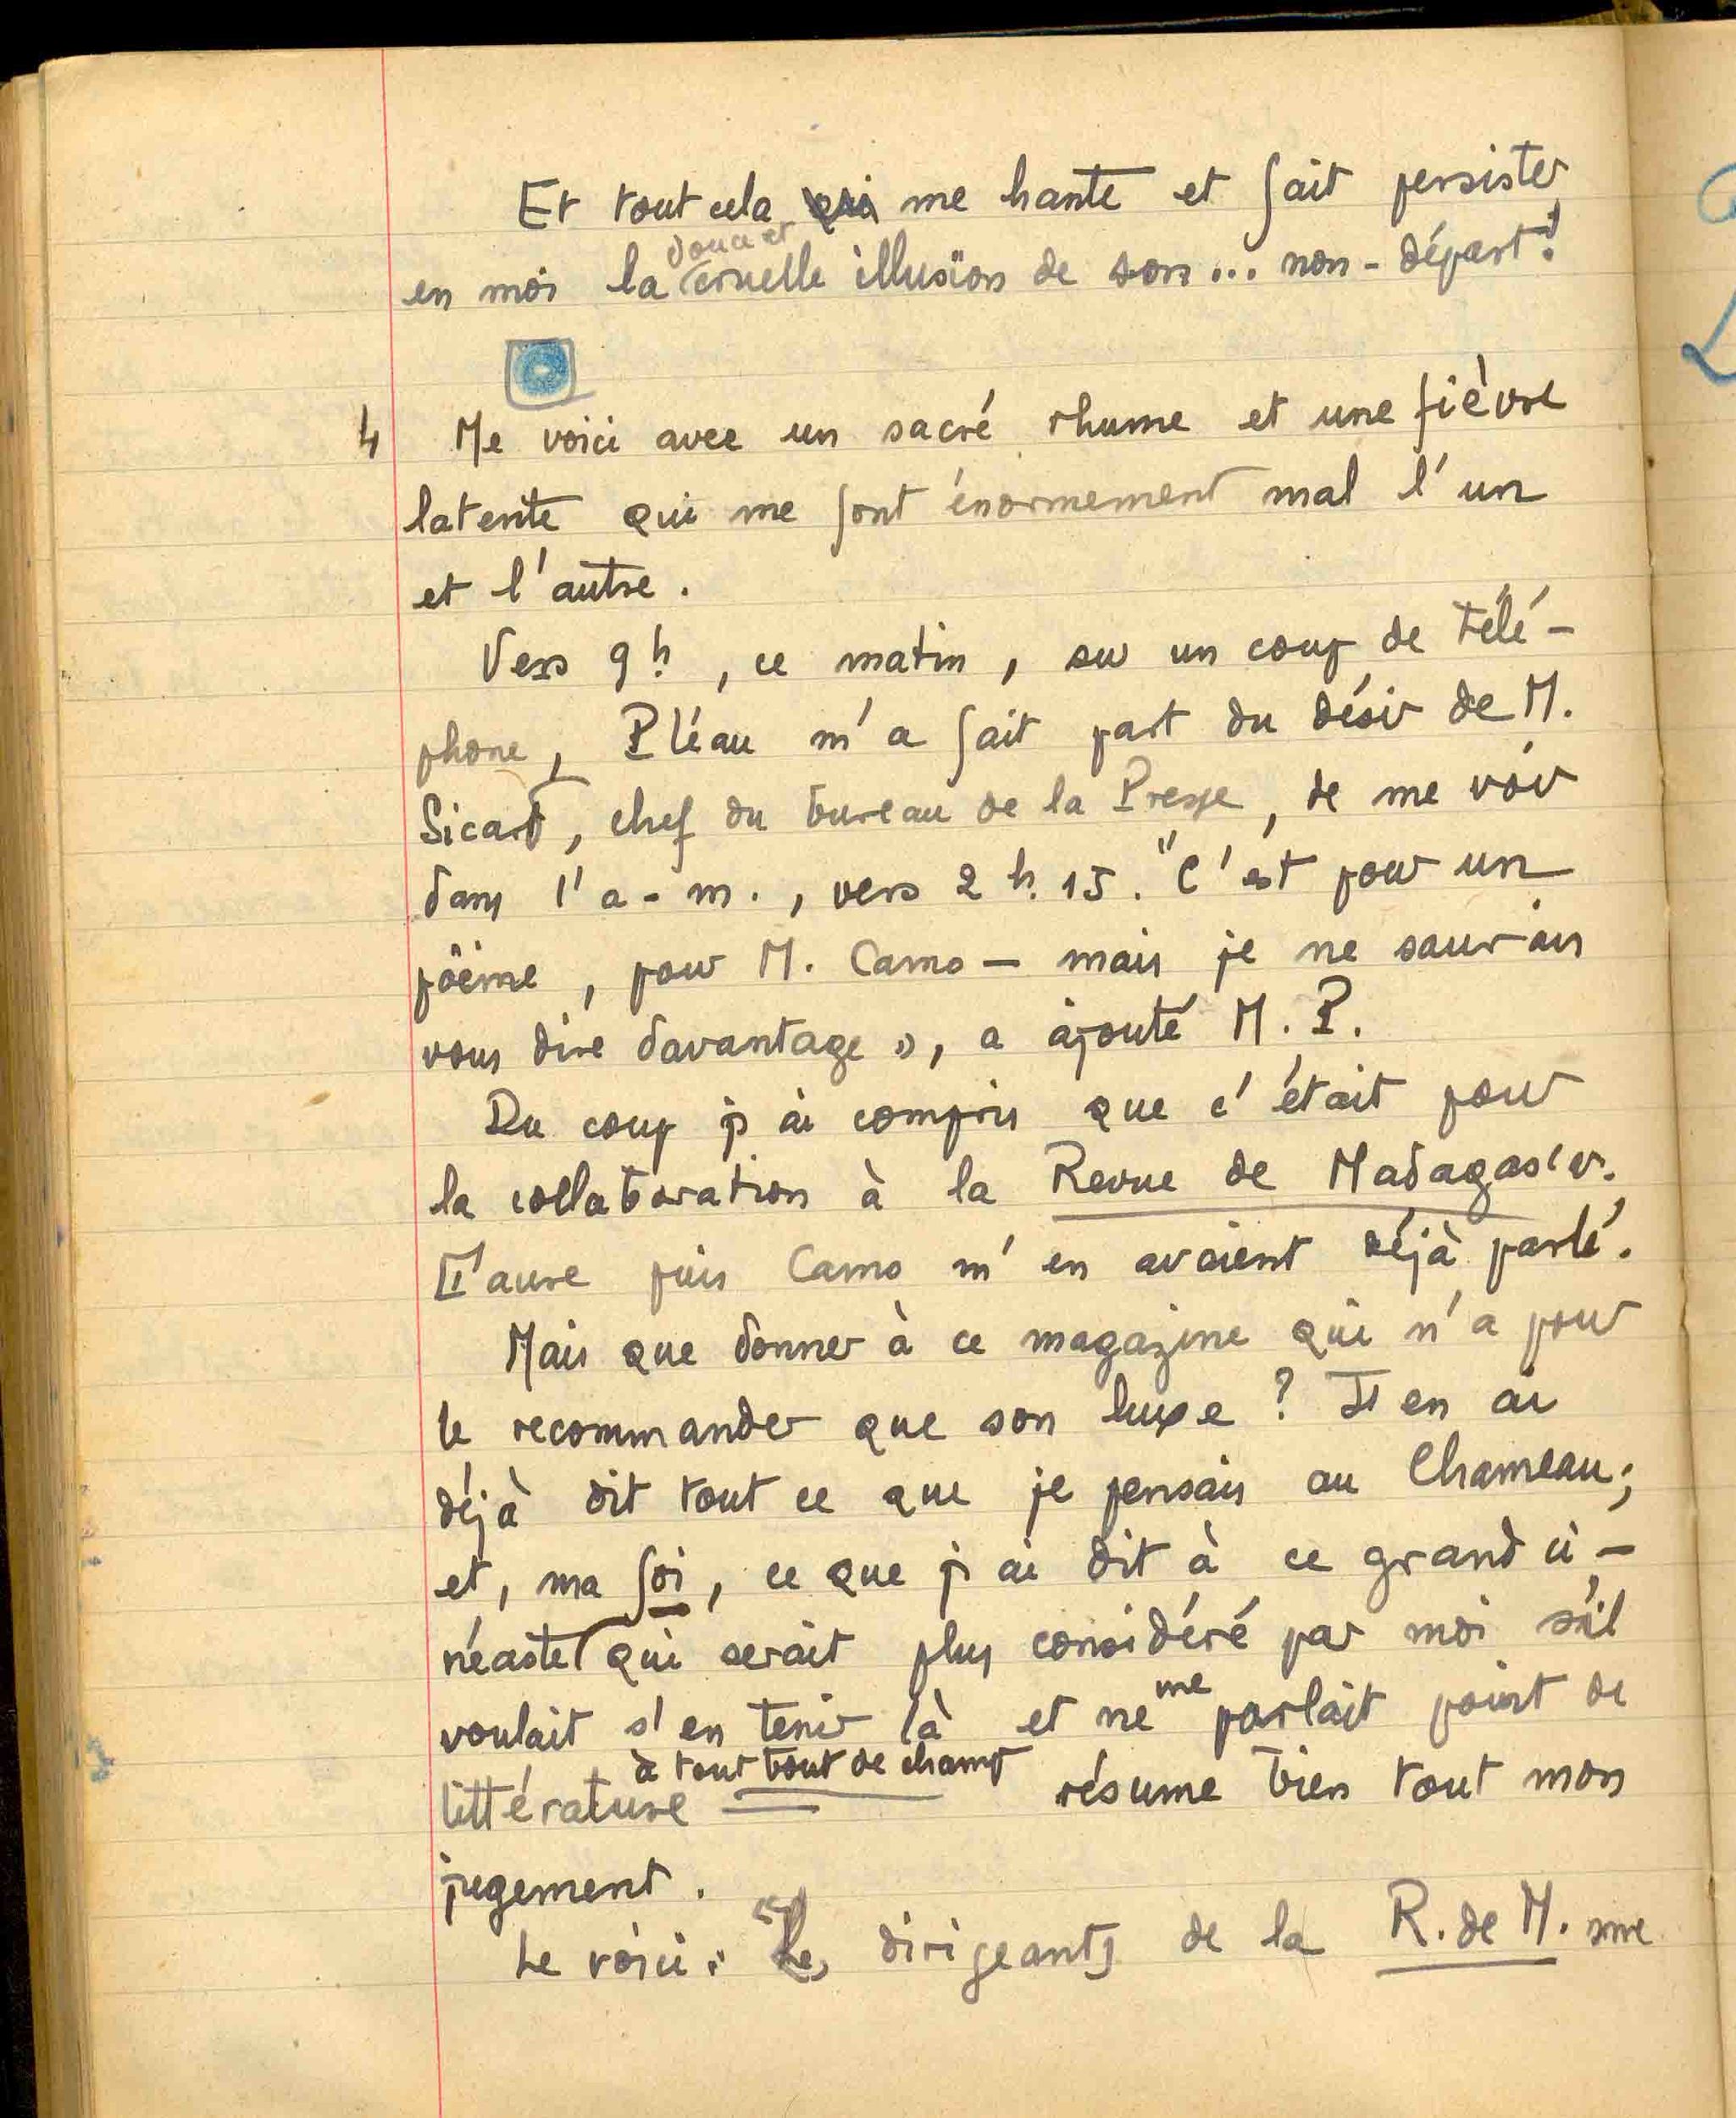 Et tout cela qui me hante et fait persister
en moi la douce et cruelle illusion de son... non-départ!
4 Me voici avec un sacré rhume et une fièvre
latente qui me font énormement mal l'un
et l'autre.
Vers 9 h, ce matin, sur un coup de télé-
phone, Pléau m'a fait part du désir de M.
Sicard, chef du bureau de la Presse, de me voir
dans l'a-m., vers 2 h. 15. "C'est pour un
poème, pour M. Camo — mais je ne saurais
vous dire davantage », a ajouté M. P.
Du coup j'ai compris que c'était pour
la collaboration à la Revue de Madagascar.
Faure puis Camo m'en avaient déjà parlé.
Mais que donner à ce magazine qui n'a pour
le recommander que son luxe ? J'en ai
déjà dit tout ce que je pensais au Chameau;
et, ma foi, ce que j'ai dit à ce grand ci-
néaste (qui serait plus considéré par moi s'il
voulait s'en tenir là et ne me parlait point de
littérature à tout bout de champ résume bien tout mon
jugement.
Le voici : "Les dirigeants de la R. de M. me